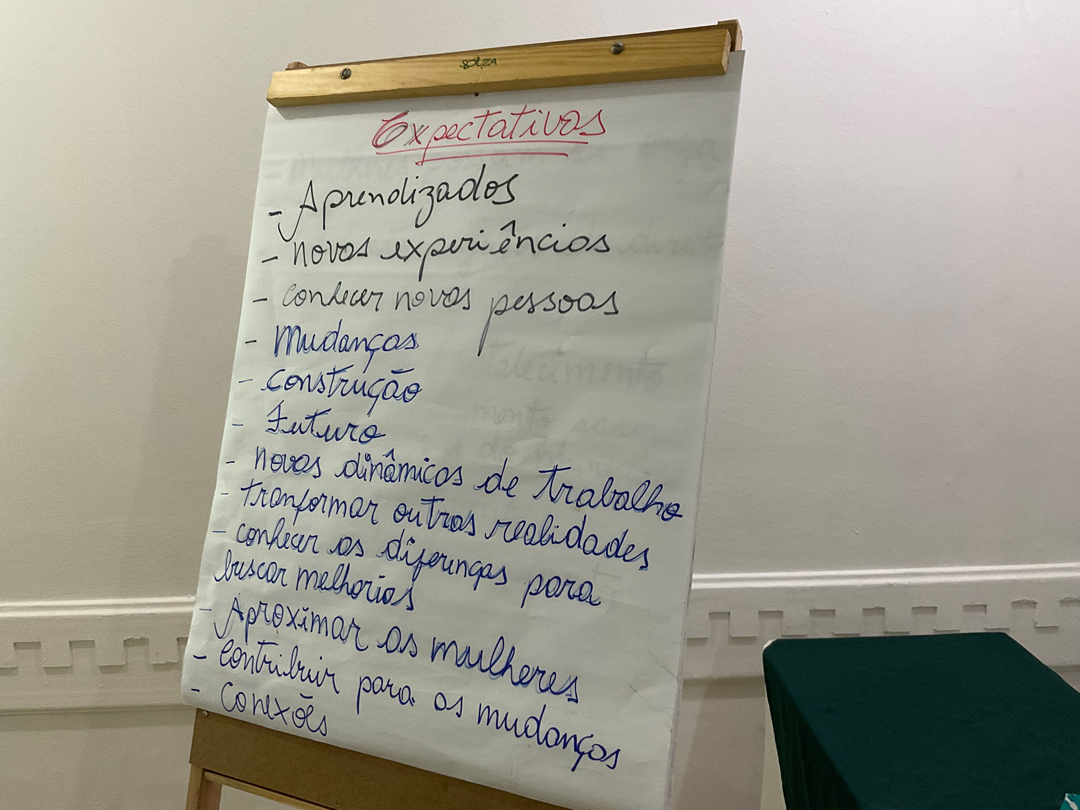 SOUZA
Expectativas
- Aprendizados
- novas experiências
- conhecer novas pessoas
- Mudanças
- construção
- Futuro
- novas dinâmicas de trabalho
- tranformar outras realidades
- conhecer as diferenças para
buscar melhorias
- Aproximar as mulheres
- Contribuir para as mudanças
- Conexões